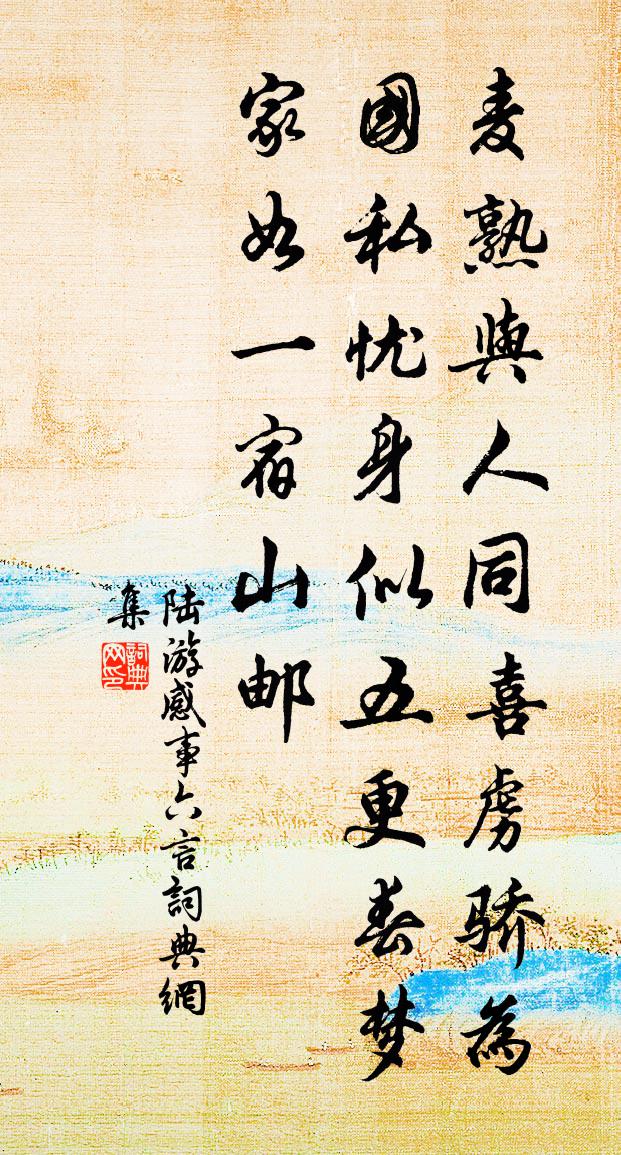 麦熟與人同喜虏骄為
國私忧身似五更春梦
家如一宿山邮
陆游感事六言詞典網
集
詞典网印